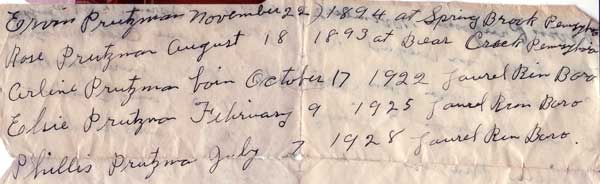 Ervin Prutzman November 22, 1894 at Spring Brook
Rose Prutzman August 18 1893 at Bear Creek
Arline Prutzman born October 17 1922 Laurel Run Boro
Elsie Prutzman February 9 1925 Laurel Run Boro
Phillis Prutzma July 7 1928 Laurel Run Boro.